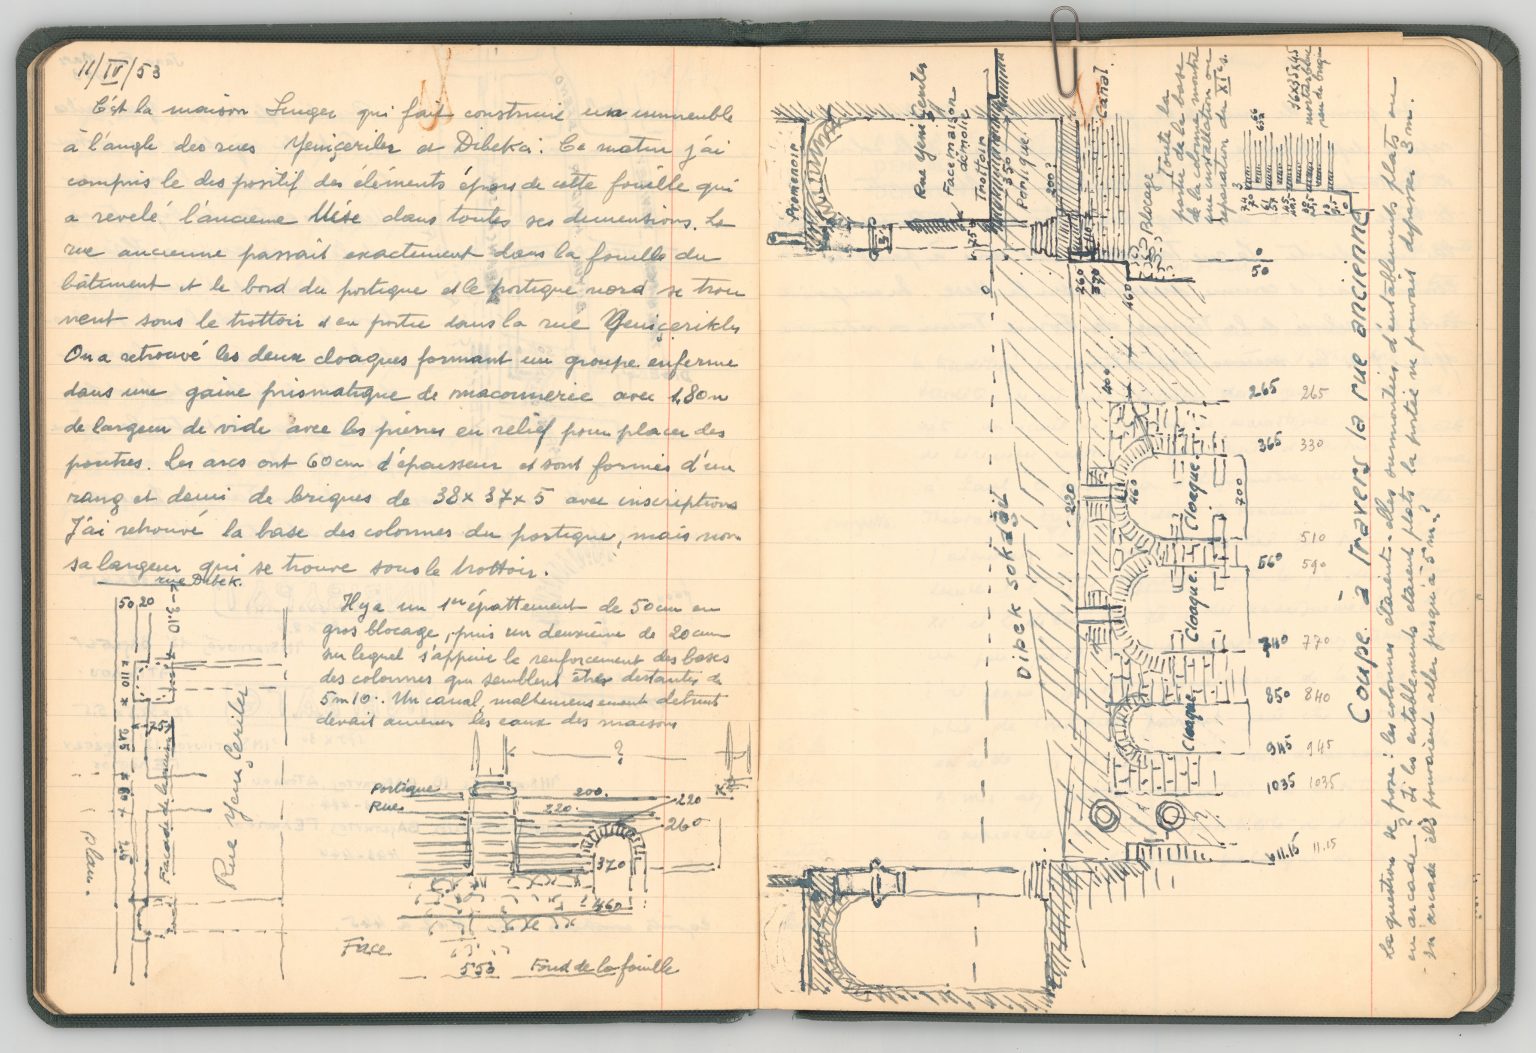 11/IV/53
C'est la maison Singer qui fait construire un immeuble
à l'angle des rues Yeniçeriler et Dibekai. Ce matin j'ai
compris le dispositif des éléments épars de cette fouille qui
a revelé l'ancienne Mése dans toutes ses dimensions. La
rue ancienne passait exactement dans la fouille du
bâtiment et le bord du portique et le portique nord se trou
vent sous le trottoir et en partie dans la rue Yeniçerikler
On a retrouvé les deux cloaques formant un groupe enfermé
dans une gaine prismatique de maconnerie avec 1,80 m
de largeur de vide avec les pierres en relief pour placer des
poutres. Les arcs ont 60cm d'épaisseur et sont formés d'un
rang et demi de briques de 38x37x5 avec inscriptions
J'ai retrouvé la base des colonnes du portique, mais non
sa largeur qui se trouve sous le trottoir.
rue Dibek.
50 20
3.10
110
75
215
60
215
Facade de la maison
Rue Yeni Ceriler
Plan.
Il y a un 1er épattement de 50cm en
gros blocage, puis un deuxième de 20cm
sur lequel s'appuie le renforcement des bases
des colonnes qui semblent être distantes de
5m10. Un canal, malheureusement detruit
devait amener les eaux des maisons
?
Portique
Rue
200
220
220
260
370
460
Face
550 Fond de la fouille
Promenoir
Rue Yeni Ceriler
Face maison
démolie
Trottoir
350
Portique
200?
Canal
75
0
260
370
460
Blocage
Toute la
partie de la base
de la colonne montre
une installation ou
reparation du XIe s.
36x35x4.5
mortier blanc
peu de brique
0
50
Dipek sokağı
220
400
460
265 265
365 330
Cloaque.
700
510
560 590
Cloaque.
740 770
850 840
Cloaque
945 945
1035 1035
11.15 11.15
Coupe à travers la rue ancienne
La question se pose: les colonnes étaient-elles surmontées d'entablements plats ou
en arcade? Si les entablements étaient plats la portée ne pouvait depasser 3 m.
En arcade ils pouvaient aller jusqu'à 5 m?